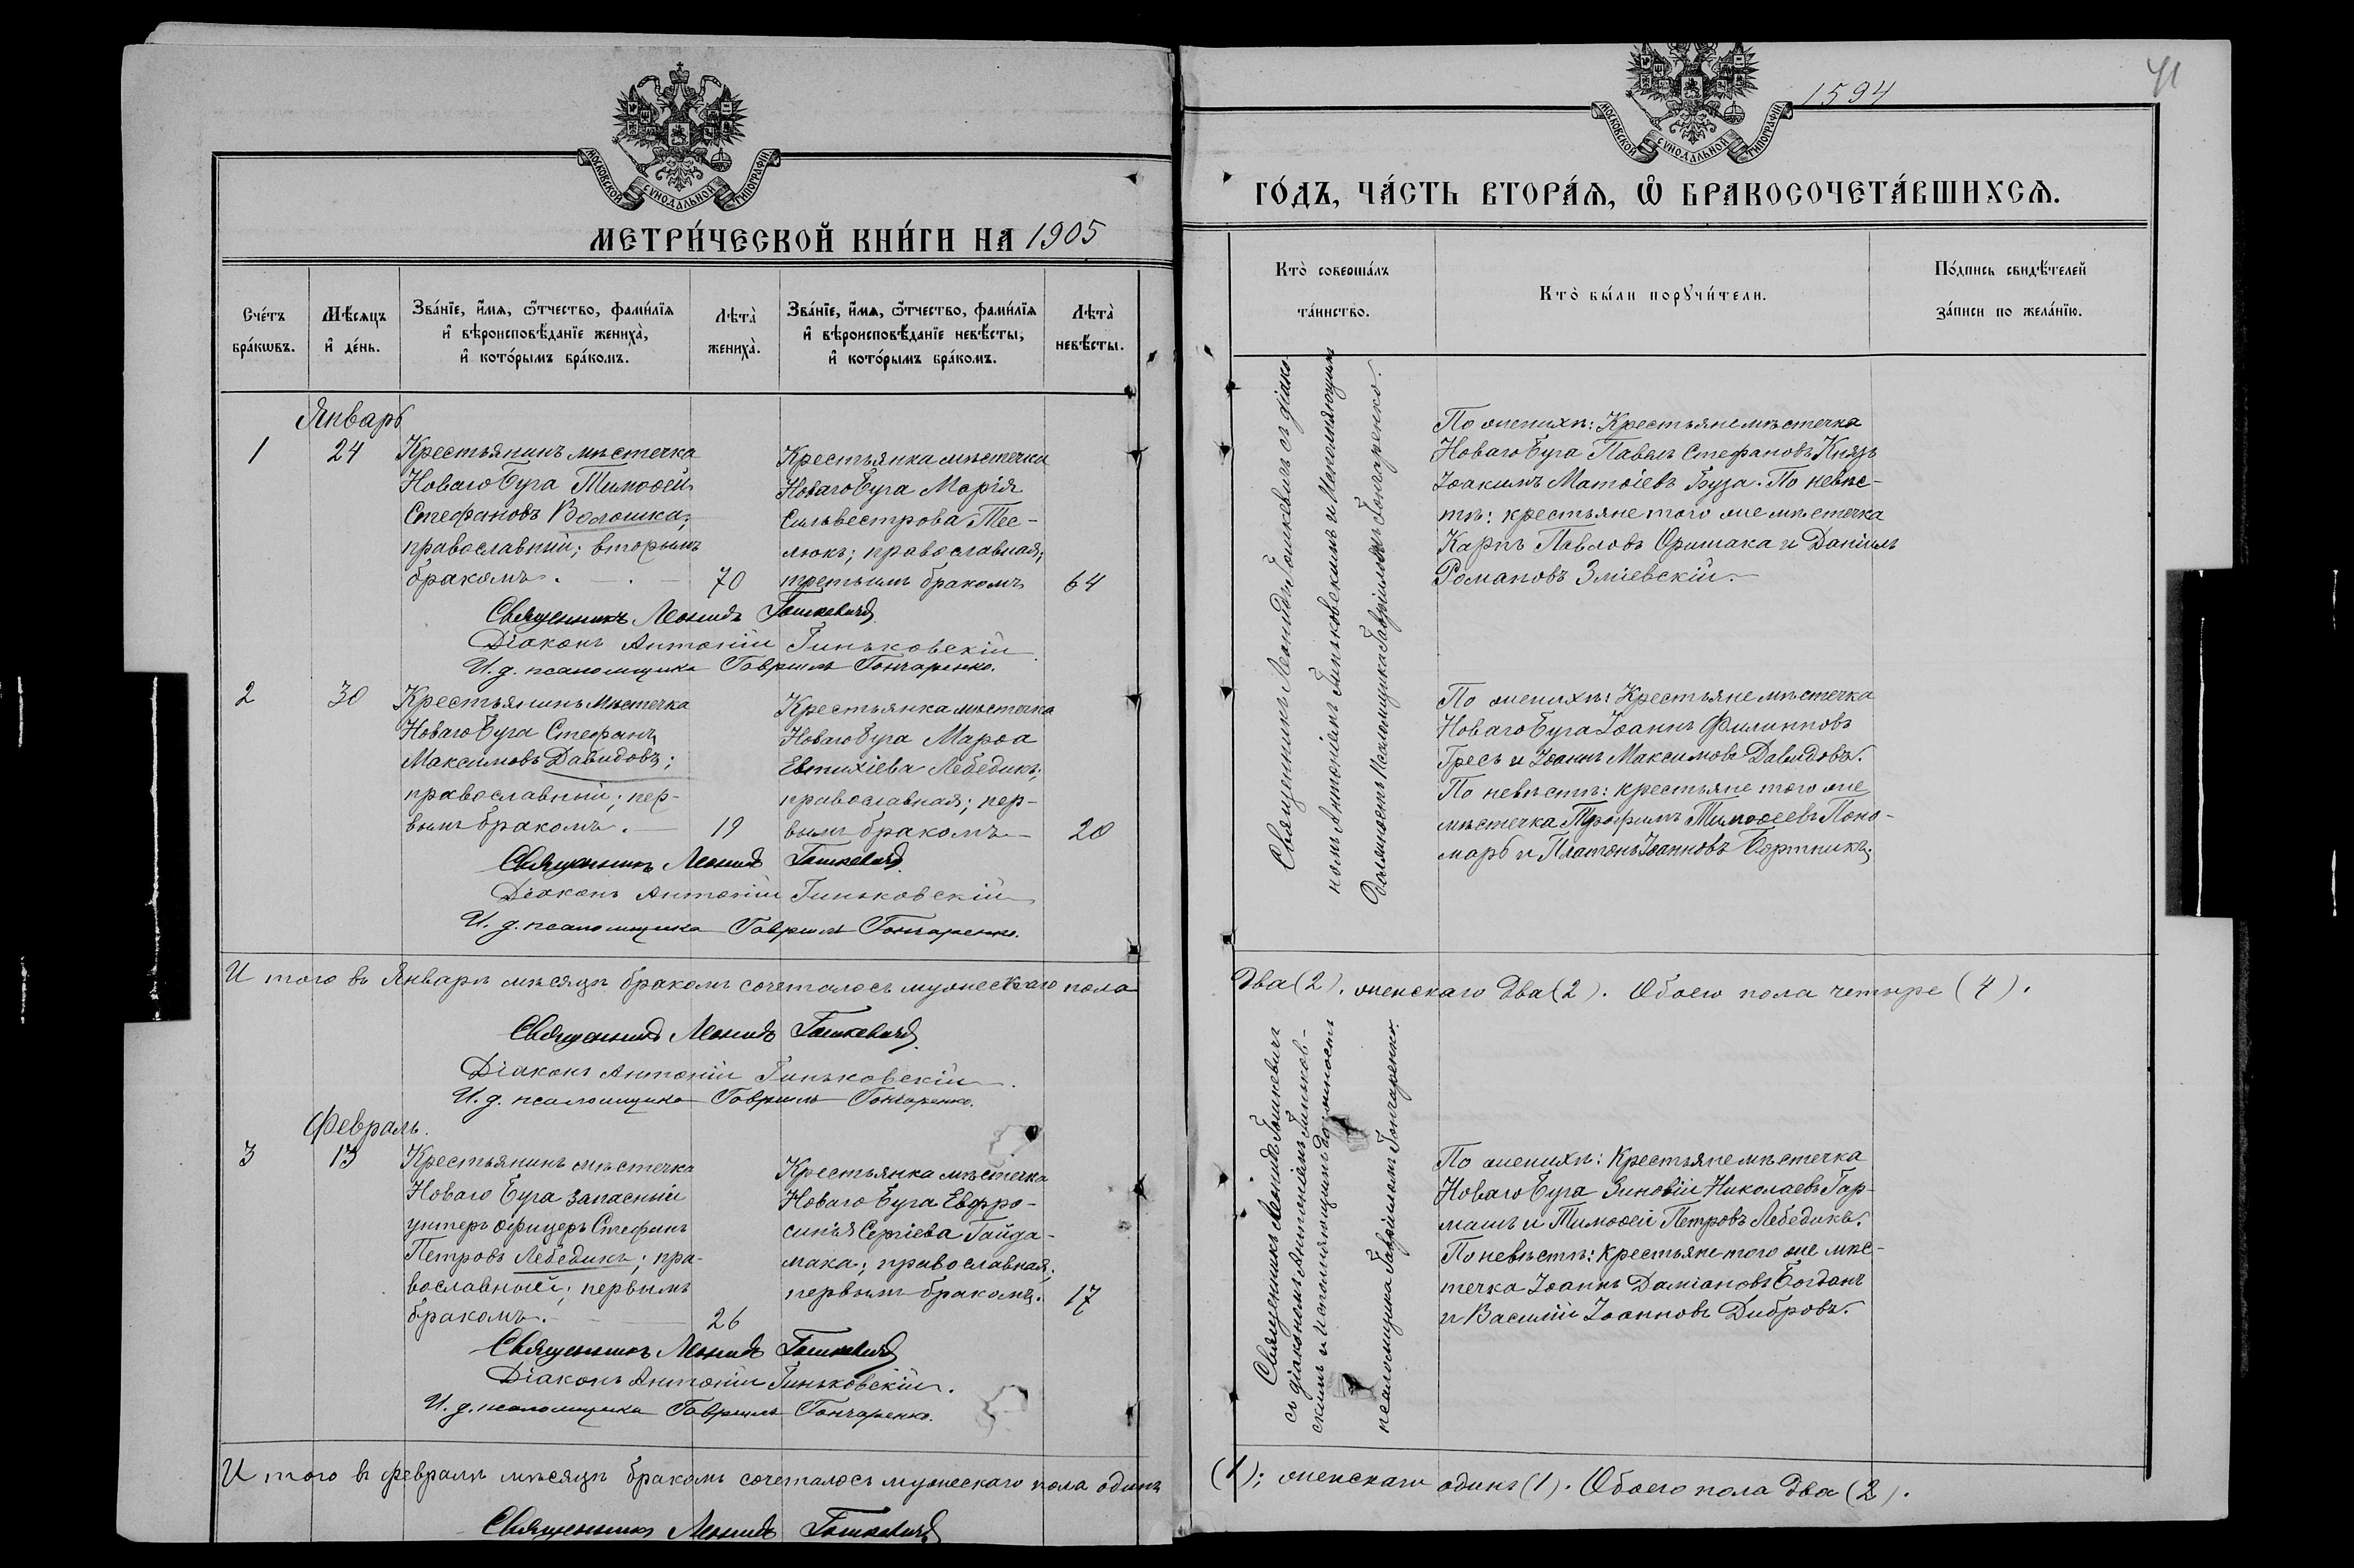 МОСКОВСКОЙ СѴНОДАЛЬНОЙ ТИПОГРАФІИ
МЕТРИ́ЧЕСКОЙ КНИ́ГИ НА 1905
Сче́тъ бра́кѡвъ.
Мѣ́сяцъ и҆ де́нь.
Зва́нїе, и҆́мѧ, ѻ҆́тчество, фами́лїѧ
и҆ вѣроисповѣ́данїе жениха̀,
и҆ кото́рымъ бра́комъ.
Лѣта̀ жениха̀.
Зва́нїе, и҆́мѧ, ѻ҆́тчество, фами́лїѧ
и҆ вѣроисповѣ́данїе невѣ́сты,
и҆ кото́рымъ бра́комъ.
Лѣта̀ невѣ́сты.
Январь
1
24
Крестьянинъ мѣстечка
Новаго Буга Тимоѳей
Стефановъ Волошка;
православный; вторымъ
бракомъ.
70
Крестьянка мѣстечка
Новаго Буга Марія
Сильвестрова Тес-
люкъ; православная;
третьимъ бракомъ
64
Священникъ Леонидъ Гошкевичъ
Діаконъ Антоній Гиньковскій
И. д. псаломщика Гавріилъ Гончаренко.
2
30
Крестьянинъ мѣстечка
Новаго Буга Стефанъ
Максимовъ Давидовъ;
православный; пер-
вымъ бракомъ.
19
Крестьянка мѣстечка
Новаго Буга Марѳа
Евтихіева Лебедикъ;
православная; пер-
вымъ бракомъ
20
Священникъ Леонидъ Гошкевичъ
Діаконъ Антоній Гиньковскій
И. д. псаломщика Гавріилъ Гончаренко.
Итого въ Январѣ мѣсяцѣ бракомъ сочеталось мужескаго пола
Священникъ Леонидъ Гошкевичъ
Діаконъ Антоній Гиньковскій.
И. д. псаломщика Гавріилъ Гончаренко.
Февраль.
3
13
Крестьянинъ мѣстечка
Новаго Буга запасный
унтеръ офицеръ Стефанъ
Петровъ Лебедикъ; пра-
вославный; первымъ
бракомъ.
26
Крестьянка мѣстечка
Новаго Буга Евфро-
синія Сергіева Гайда-
мака; православная;
первымъ бракомъ.
17
Священникъ Леонидъ Гошкевичъ
Діаконъ Антоній Гиньковскій.
И. д. псаломщика Гавріилъ Гончаренко.
Итого въ Февралѣ мѣсяцѣ бракомъ сочеталось мужескаго пола одинъ
Священникъ Леонидъ Гошкевичъ
41
1594
МОСКОВСКОЙ СѴНОДАЛЬНОЙ ТИПОГРАФІИ
ГО́ДЪ, ЧА́СТЬ ВТОРА́Ѧ, Ѡ҆ БРАКОСОЧЕТА́ВШИХСѦ.
Кто̀ соверша́лъ
та́инство.
Кто̀ бы́ли порꙋчи́тели.
По́дпись свидѣ́телей
за́писи по жела́нїю.
Священникъ Леонидъ Гошкевичъ съ діако-
номъ Антоніемъ Гиньковскимъ и Исполняющимъ
Должность Псаломщика Гавріиломъ Гончаренко.
По женихѣ: Крестьяне мѣстечка
Новаго Буга Павелъ Стефановъ Князь
Іоакимъ Матѳіевъ Буза. По невѣс-
тѣ: крестьяне того же мѣстечка
Карпъ Павловъ Оришака и Даніилъ
Романовъ Зміевскій.
По женихѣ: Крестьяне мѣстечка
Новаго Буга Іоаннъ Филипповъ
Гресь и Іоаннъ Максимовъ Давидовъ.
По невѣстѣ: крестьяне того же
мѣстечка Трофимъ Тимоѳеевъ Поно-
марь и Платонъ Іоанновъ Бортникъ.
Два (2). женскаго Два (2). Обоего пола четыре (4).
Священникъ Леонидъ Гошкевичъ
съ діакономъ Антоніемъ Гиньков-
скимъ и Исполняющимъ должность
псаломщика Гавріиломъ Гончаренко.
По женихѣ: Крестьяне мѣстечка
Новаго Буга Зиновій Николаевъ Гар-
машъ и Тимоѳей Петровъ Лебедикъ.
По невѣстѣ: крестьяне того же мѣс-
течка Іоаннъ Даміановъ Богданъ
и Василій Іоанновъ Дибровъ.
(1); женскаго одинъ (1). Обоего пола Два (2).